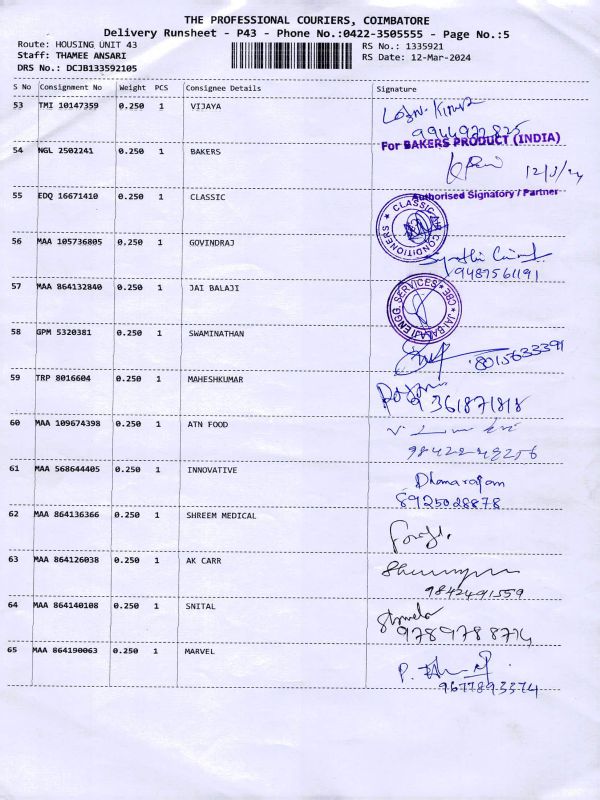 THE PROFESSIONAL COURIERS, COIMBATORE
Delivery Runsheet - P43 - Phone No.:0422-3505555 - Page No.:5
Route: HOUSING UNIT 43 RS No.: 1335921
Staff: THAMEE ANSARI RS Date: 12-Mar-2024
DRS No.: DCJB133592105
S No Consignment No Weight PCS Consignee Details Signature
53 TMI 10147359 0.250 1 VIJAYA
For BAKERS PRODUCT (INDIA)
54 NGL 2502241 0.250 1 BAKERS
12/3/24
Authorised Signatory / Partner
55 EDQ 16671410 0.250 1 CLASSIC
CLASSIC CONDITIONERS
56 MAA 105736805 0.250 1 GOVINDRAJ
9487561191
57 MAA 864132840 0.250 1 JAI BALAJI
JAI BALAJI ENGG SERVICES CBE
58 GPM 5320381 0.250 1 SWAMINATHAN
8015633391
59 TRP 8016604 0.250 1 MAHESHKUMAR
9361871818
60 MAA 109674398 0.250 1 ATN FOOD
98422-48256
61 MAA 568644405 0.250 1 INNOVATIVE Dhanarajam
8925028878
62 MAA 864136366 0.250 1 SHREEM MEDICAL
63 MAA 864126038 0.250 1 AK CARR
9842491559
64 MAA 864140108 0.250 1 SNITAL
9789788714
65 MAA 864190063 0.250 1 MARVEL
9677893374